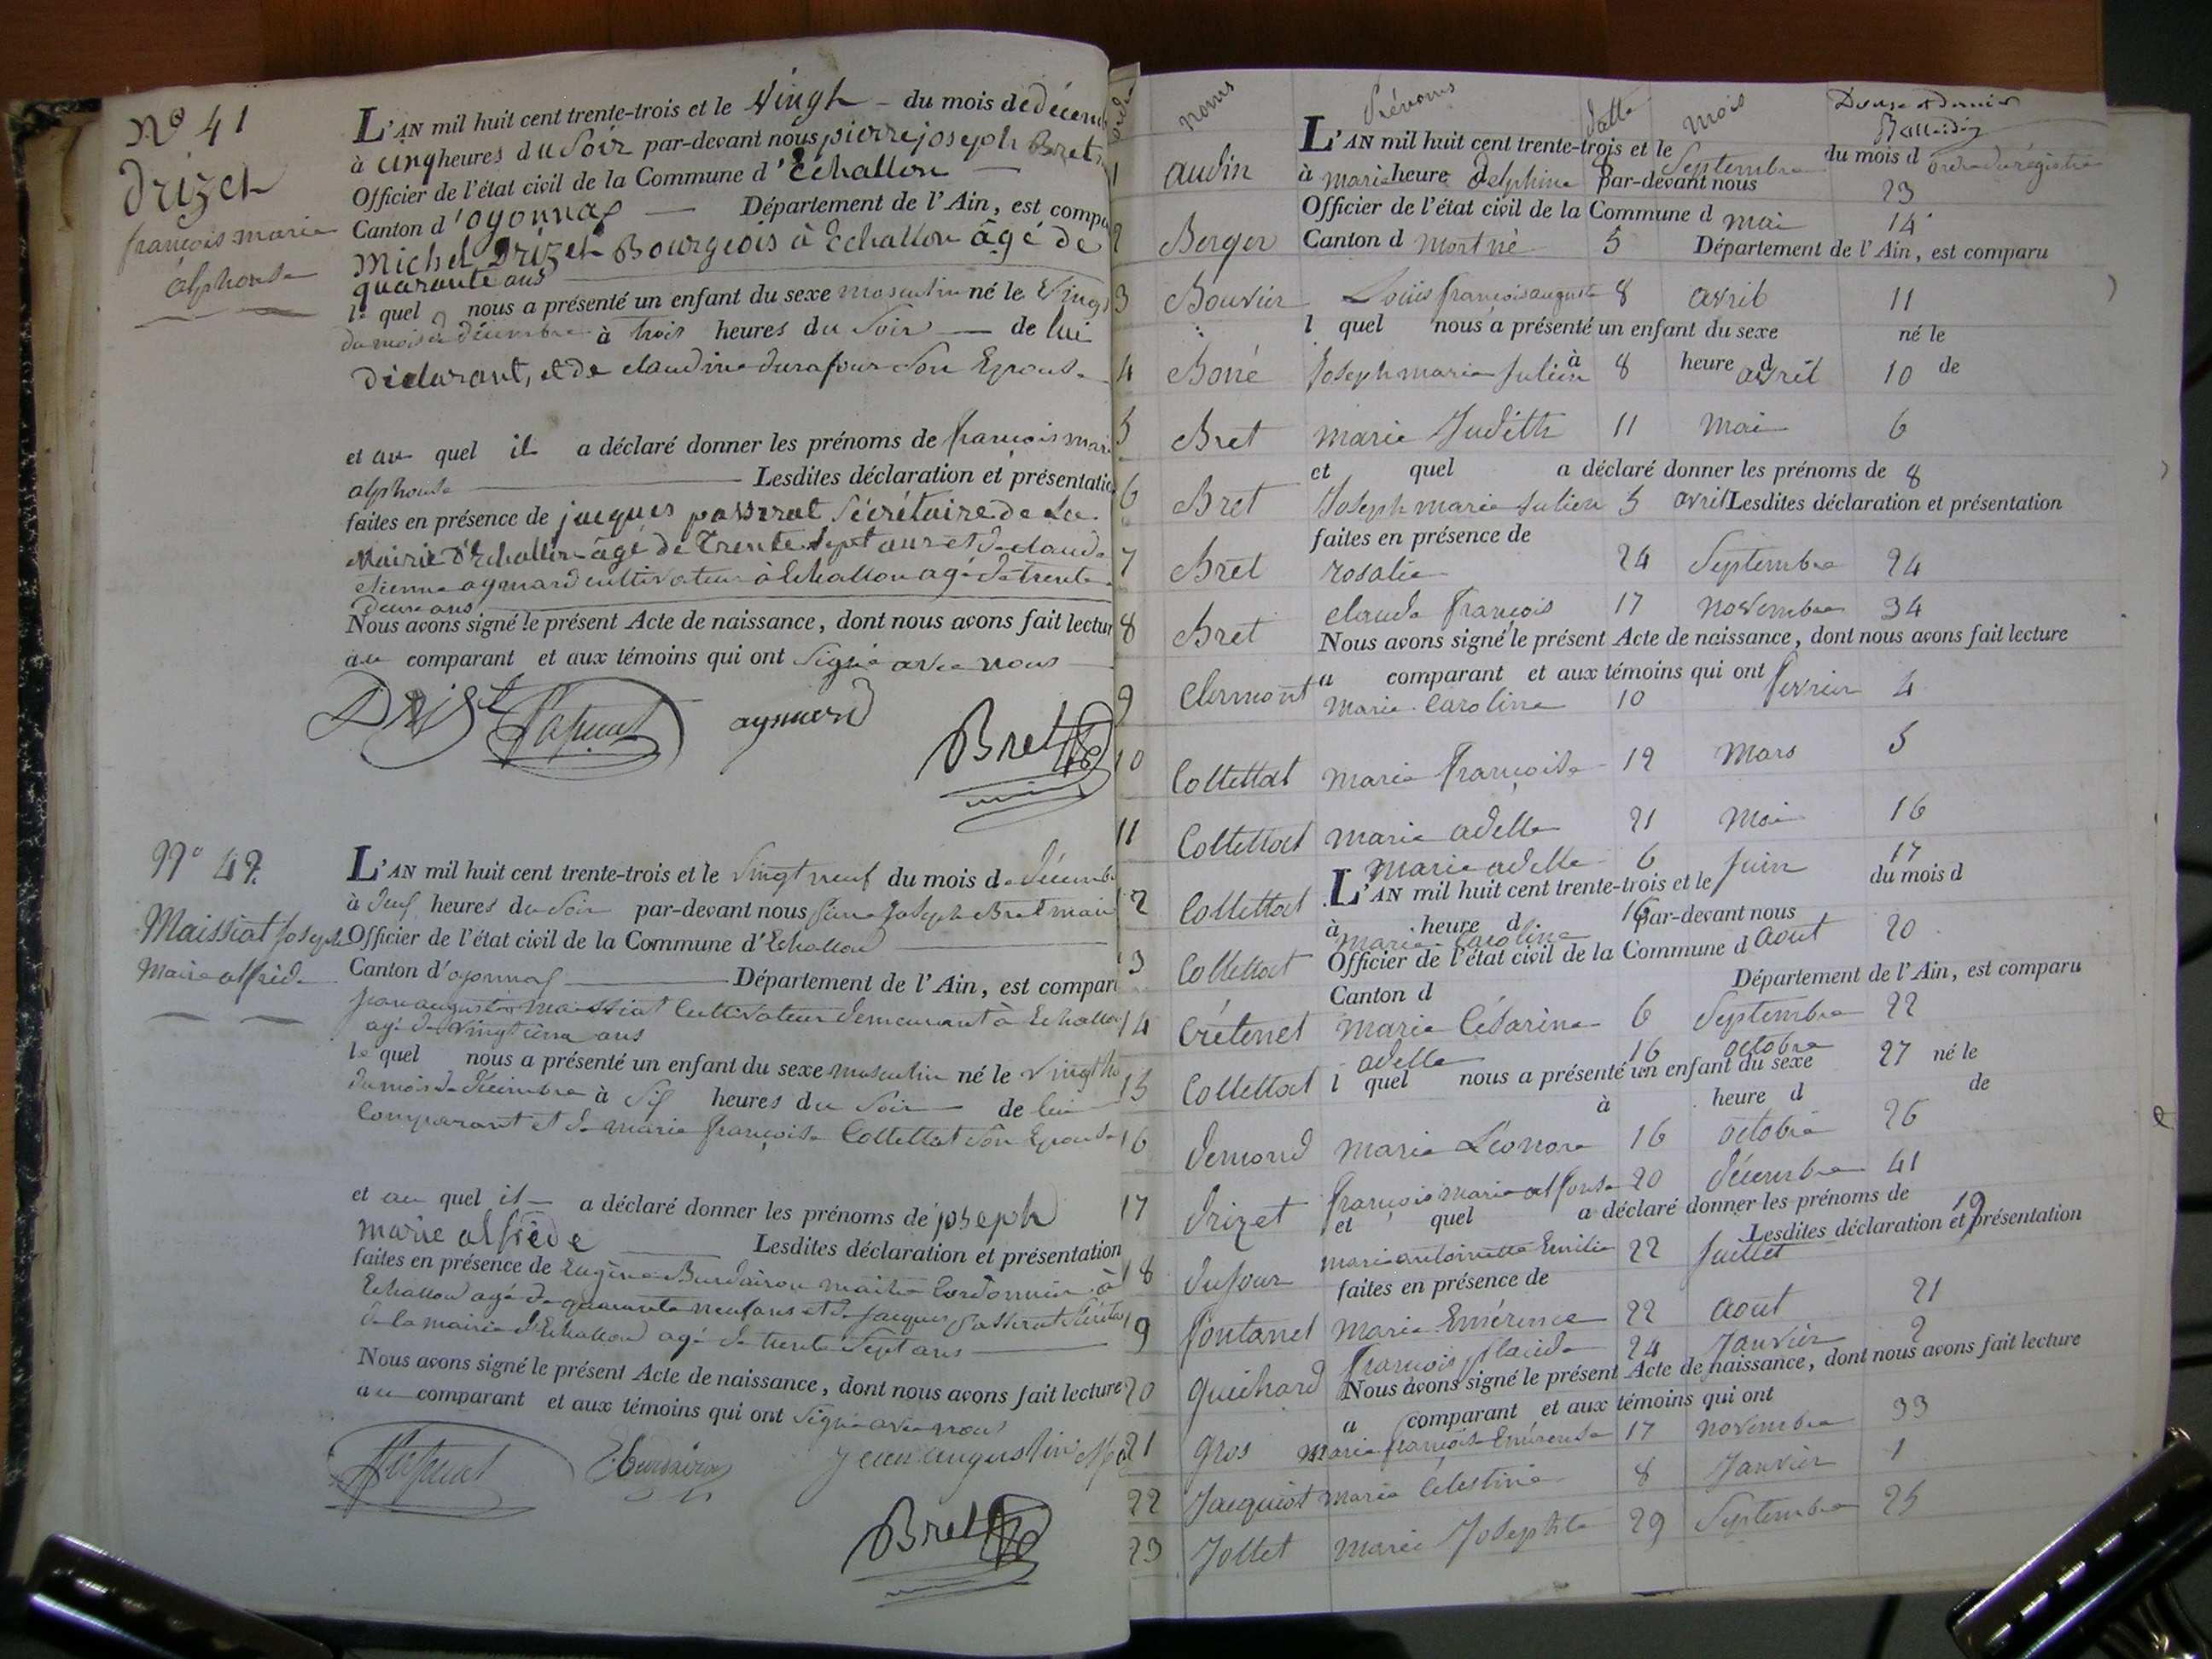 N° 41
Drizet
françois marie
alphonse
L'AN mil huit cent trente-trois et le Vingt - du mois de décem
à cinq heures du Soir par-devant nous pierre joseph Bret
Officier de l'état civil de la Commune d'Echallon
Canton d'oyonnax Département de l'Ain, est compa
Michel Drizet Bourgeois à Echallon âgé de
quarante ans
le quel nous a présenté un enfant du sexe masculin né le Vingt
du mois de décembre à trois heures du Soir de lui
déclarant, et de claudine durafour Son Epouse
et au quel il a déclaré donner les prénoms de françois mari
alphonse Lesdites déclaration et présentatio
faites en présence de jacques passerat Sécrétaire de La
Mairie d'Echallon âgé de Trente Sept ans et de claude
étienne aymard cultivateur à Echallon agé de trente
deux ans
Nous avons signé le présent Acte de naissance, dont nous avons fait lectur
au comparant et aux témoins qui ont Signé avec nous
Drizet Passerat aymard
Bret
N° 42
Maissiat joseph
Marie alfrède
L'AN mil huit cent trente-trois et le Vingt neuf du mois de décemb
à heures du Soir par-devant nous pierre joseph Bret mair
Officier de l'état civil de la Commune d'Echallon
Canton d'oyonnax Département de l'Ain, est compar
jean augustin maissiat Cultivateur demeurant à Echallon
agé de Vingt cinq ans
le quel nous a présenté un enfant du sexe masculin né le Vingt
du mois de décembre à Six heures du Soir de lui
Comparant et de marie françoise Collettat Son Epouse
et au quel il a déclaré donner les prénoms de joseph
marie alfrède Lesdites déclaration et présentation
faites en présence de Eugène Burdairon maitre Cordonnier à
Echallon agé de quarante neuf ans et de jacques Passerat Sécrétai
de la mairie d'Echallon agé de trente Sept ans
Nous avons signé le présent Acte de naissance, dont nous avons fait lecture
au comparant et aux témoins qui ont Signé avec nous
Passerat Eburdairon Jean augustin
Bret
noms Prénoms datte mois
ordre du régistre
L'AN mil huit cent trente-trois et le du mois d
1 audin marie delphine Septembre 23
à heure d par-devant nous
Officier de l'état civil de la Commune d
2 Berger mort né 5 mai 14
Canton d Département de l'Ain, est comparu
3 Bouvier Louis françois auguste 8 avril 11
l quel nous a présenté un enfant du sexe né le
à heure d de
4 Boné Joseph marie julien 8 avril 10
5 Bret marie Judith 11 mai 6
et quel a déclaré donner les prénoms de
6 Bret Joseph marie julien 5 avril 8
Lesdites déclaration et présentation
faites en présence de
7 Bret rosalie 24 Septembre 24
8 Bret claude françois 17 novembre 34
Nous avons signé le présent Acte de naissance, dont nous avons fait lecture
a comparant et aux témoins qui ont
9 Clermont marie Caroline 10 fevrier 4
10 Collettat marie françoise 12 mars 5
11 Collettat marie adelle 21 mai 16
12 Collettat marie adelle 6 juin 17
L'AN mil huit cent trente-trois et le du mois d
à heure d par-devant nous
13 Collettat marie Caroline 16 aout 20
Officier de l'état civil de la Commune d
Canton d Département de l'Ain, est comparu
14 Crétenet marie Césarine 6 Septembre 22
15 Collettat adelle 16 octobre 27
l quel nous a présenté un enfant du sexe né le
à heure d de
16 demond marie Léonore 16 octobre 26
17 drizet françois marie alfonse 20 décembre 41
et quel a déclaré donner les prénoms de
Lesdites déclaration et présentation
18 dufour marie antoinette Emilie 22 juillet 19
faites en présence de
19 fontanel marie Emérence 22 aout 21
20 guichard françois placide 24 janvier 2
Nous avons signé le présent Acte de naissance, dont nous avons fait lecture
a comparant et aux témoins qui ont
21 gros marie françoise Emérense 17 novembre 33
22 Jacquiot marie Célestine 8 Janvier 1
23 Jollet marie Josephte 29 Septembre 25